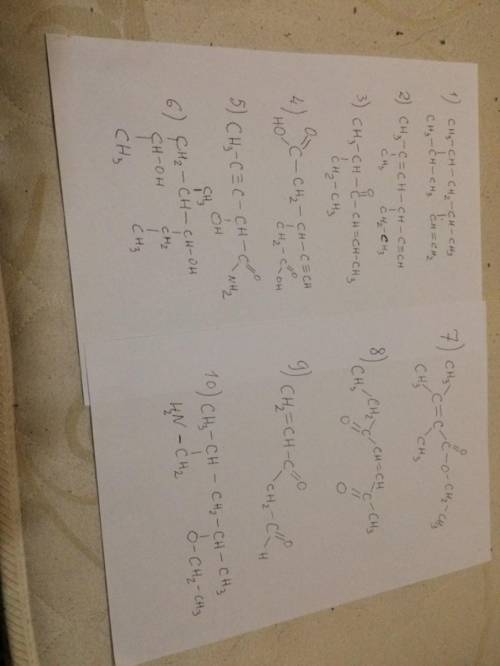 1) CH3-CH-CH2-CH-CH3
CH3-CH-CH3 CH=CH2
2) CH3-C=CH-CH-C≡CH
CH3 CH2-CH3
O
3) CH3-CH-C-CH=CH-CH3
CH2-CH3
4) O
HO C-CH2-CH-C≡CH
CH2-C O
OH
5) CH3-C≡C-CH-C O
OH NH2
6) CH2-CH-CH-OH
CH3
CH-OH CH2
CH3 CH3
7) CH3
CH3 C=C-C O
CH3 O-CH2-CH3
8) CH3 CH2 C CH=CH C CH3
O O
9) CH2=CH-C O
CH2-C O
H
10) CH3-CH-CH2-CH-CH3
H2N-CH2 O-CH2-CH3